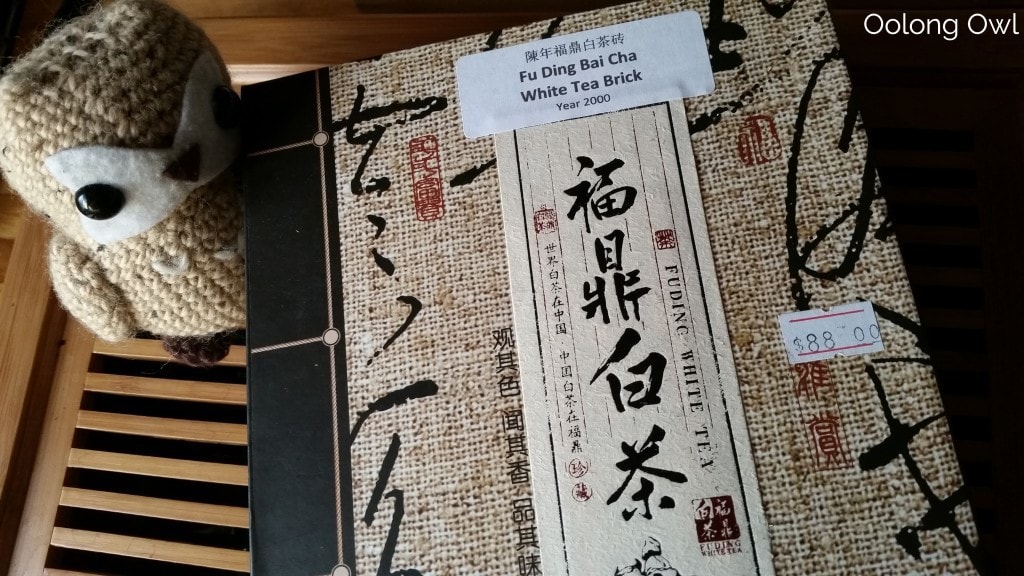 Oolong Owl
陳年福鼎白茶砖
Fu Ding Bai Cha
White Tea Brick
Year 2000
福鼎白茶
FUDING WHITE TEA
世界白茶在中国 中国白茶在福鼎
珍藏
观其色 闻其香 品其味
$88.00
雅赏
福鼎
白茶
FUDING
WHITE TEA